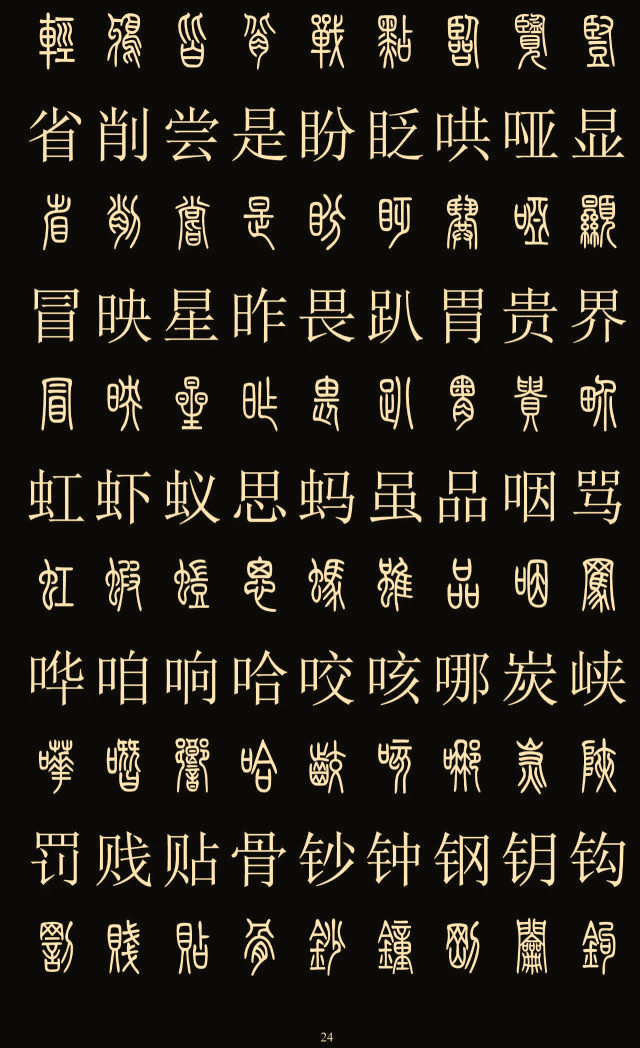 輕 皆 戰 點 臨 覽 豎
省 削 尝 是 盼 眨 哄 哑 显
省 削 嘗 是 盼 啞 顯
冒 映 星 昨 畏 趴 胃 贵 界
冒 映 星 昨 畏 趴 胃 貴 界
虹 虾 蚁 思 蚂 虽 品 咽 骂
虹 蝦 螘 思 螞 雖 品 咽 罵
哗 咱 响 哈 咬 咳 哪 炭 峡
嘩 噆 響 哈 齩 咳 哪 炭 陜
罚 贱 贴 骨 钞 钟 钢 钥 钩
罰 賤 貼 骨 鈔 鐘 剛 鉤
24